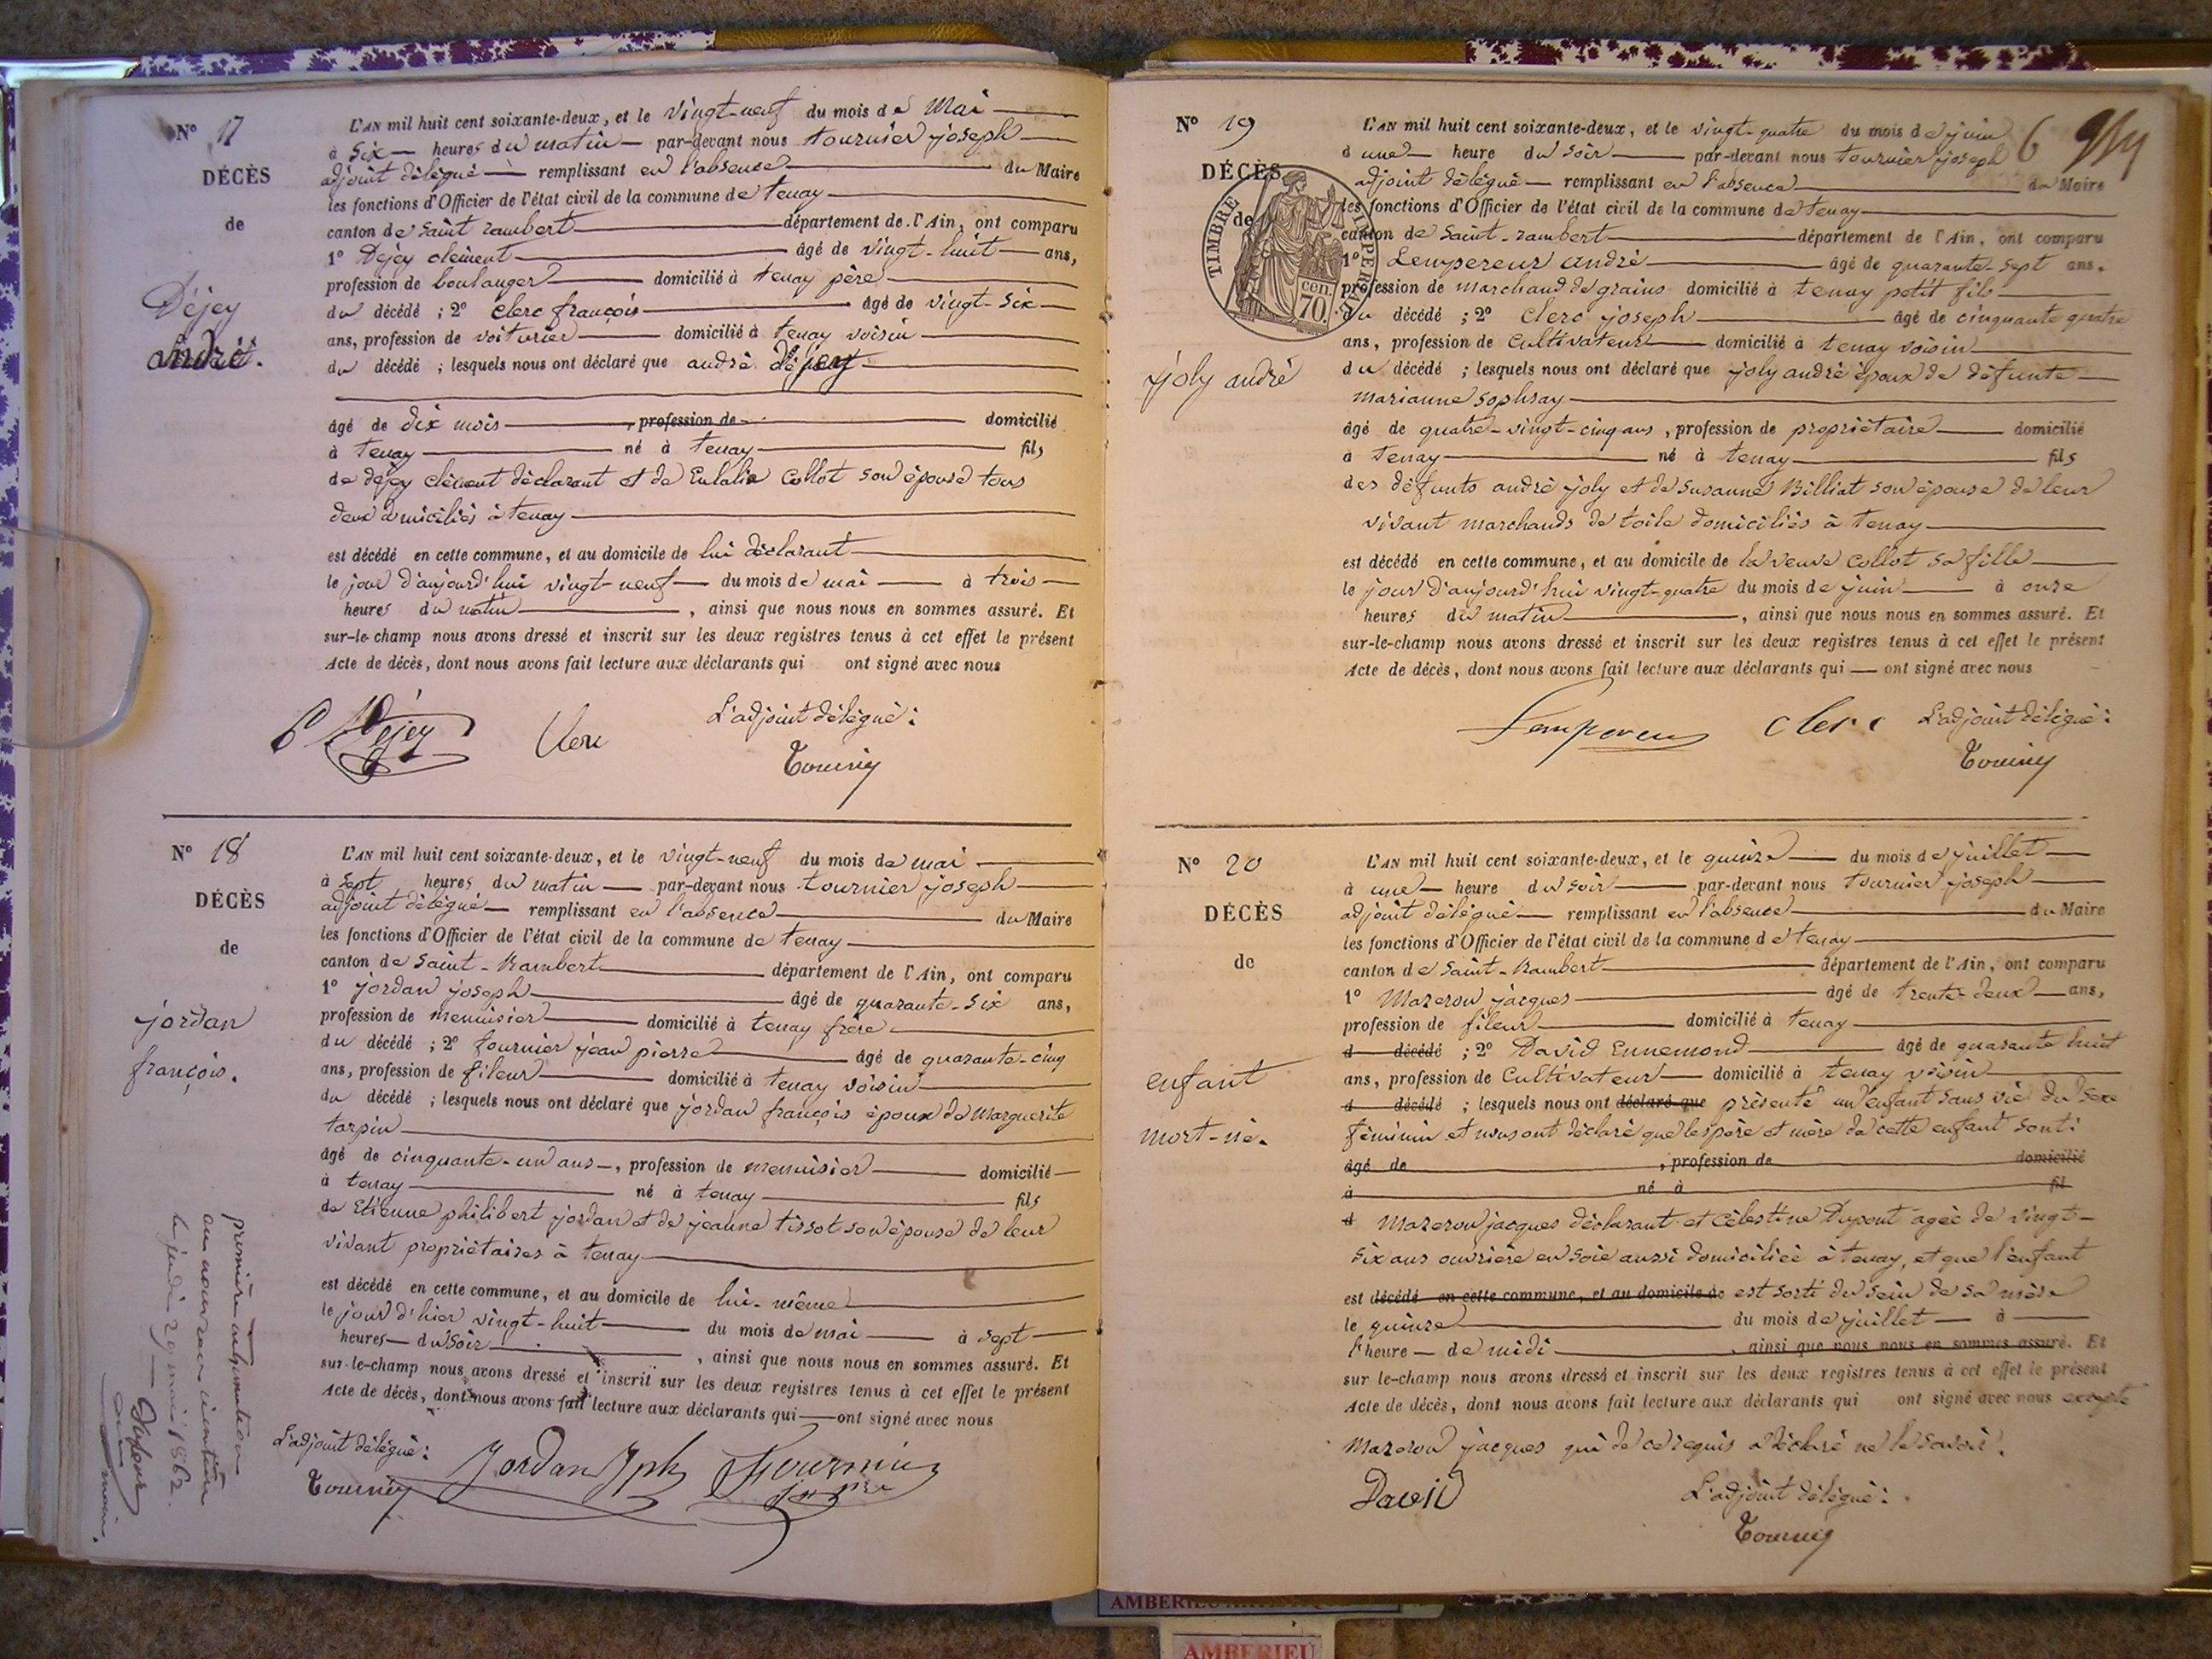 N° 17
DÉCÈS
de
Déjey
André.
L'AN mil huit cent soixante-deux, et le vingt-neuf du mois de Mai
à six heures du matin par-devant nous tournier joseph
adjoint délégué remplissant en l'absence du Maire
les fonctions d'Officier de l'état civil de la commune de tenay
canton de Saint rambert département de l'Ain, ont comparu
1° Déjey clément âgé de vingt-huit ans,
profession de boulanger domicilié à tenay père
du décédé ; 2° clerc françois âgé de vingt-six
ans, profession de voiturier domicilié à tenay voisin
du décédé ; lesquels nous ont déclaré que andré déjey
âgé de dix mois , profession de domicilié
à tenay né à tenay fils
de déjey clément déclarant et de Eulalie Collot son épouse tous
deux domiciliés à tenay
est décédé en cette commune, et au domicile de lui déclarant
le jour d'aujourd'hui vingt-neuf du mois de mai à trois
heures du matin , ainsi que nous nous en sommes assuré. Et
sur-le-champ nous avons dressé et inscrit sur les deux registres tenus à cet effet le présent
Acte de décès, dont nous avons fait lecture aux déclarants qui ont signé avec nous
Déjey Clerc L'adjoint délégué :
Tournier
N° 18
DÉCÈS
de
jordan
françois.
L'AN mil huit cent soixante-deux, et le vingt-neuf du mois de mai
à sept heures du matin par-devant nous tournier joseph
adjoint délégué remplissant en l'absence du Maire
les fonctions d'Officier de l'état civil de la commune de tenay
canton de Saint-Rambert département de l'Ain, ont comparu
1° jordan joseph âgé de quarante-six ans,
profession de menuisier domicilié à tenay frère
du décédé ; 2° fournier jean pierre âgé de quarante-cinq
ans, profession de fileur domicilié à tenay voisin
du décédé ; lesquels nous ont déclaré que jordan françois époux de Marguerite
tarpin
âgé de cinquante-un ans , profession de menuisier domicilié
à tenay né à tenay fils
de Etienne philibert jordan et de jeanne tissot son épouse de leur
vivant propriétaires à tenay
est décédé en cette commune, et au domicile de lui-même
le jour d'hier vingt-huit du mois de mai à sept
heures du soir , ainsi que nous nous en sommes assuré. Et
sur-le-champ nous avons dressé et inscrit sur les deux registres tenus à cet effet le présent
Acte de décès, dont nous avons fait lecture aux déclarants qui ont signé avec nous
L'adjoint délégué :
Tournier Jordan Jph Fournier
première inhumation
au nouveau cimetière
le jeudi 29 mai 1862.
N° 19
DÉCÈS
de
TIMBRE IMPERIAL
70. cen.
joly andré
6
L'AN mil huit cent soixante-deux, et le vingt-quatre du mois de juin
à une heure du soir par-devant nous tournier joseph
adjoint délégué remplissant en l'absence du Maire
les fonctions d'Officier de l'état civil de la commune de tenay
canton de Saint-rambert département de l'Ain, ont comparu
1° Lempereur andré âgé de quarante-sept ans,
profession de marchand de grains domicilié à tenay petit fils
du décédé ; 2° Clerc joseph âgé de cinquante quatre
ans, profession de Cultivateur domicilié à tenay voisin
du décédé ; lesquels nous ont déclaré que joly andré époux de défunte
marianne Sophray
âgé de quatre-vingt-cinq ans , profession de propriétaire domicilié
à tenay né à tenay fils
des défunts andré joly et de Susanne Billiat son épouse de leur
vivant marchands de toile domiciliés à tenay
est décédé en cette commune, et au domicile de la veuve Collot sa fille
le jour d'aujourd'hui vingt-quatre du mois de juin à onze
heures du matin , ainsi que nous nous en sommes assuré. Et
sur-le-champ nous avons dressé et inscrit sur les deux registres tenus à cet effet le présent
Acte de décès, dont nous avons fait lecture aux déclarants qui ont signé avec nous
Lempereur Clerc L'adjoint délégué :
Tournier
N° 20
DÉCÈS
de
enfant
mort-né.
L'AN mil huit cent soixante-deux, et le quinze du mois de juillet
à une heure du soir par-devant nous tournier joseph
adjoint délégué remplissant en l'absence du Maire
les fonctions d'Officier de l'état civil de la commune de tenay
canton de Saint-Rambert département de l'Ain, ont comparu
1° Mazeron jacques âgé de trente-deux ans,
profession de fileur domicilié à tenay
d décédé ; 2° David Ennemond âgé de quarante huit
ans, profession de Cultivateur domicilié à tenay voisin
d décédé ; lesquels nous ont déclaré que présenté un enfant sans vie du sexe
féminin et nous ont déclaré que les père et mère de cette enfant sont :
âgé de , profession de domicilié
à né à fil
d Mazeron jacques déclarant et Célestine Dupont agée de vingt-
six ans ouvrière en soie aussi domiciliée à tenay, et que l'enfant
est décédé en cette commune, et au domicile de est sorti du sein de sa mère
le quinze du mois de juillet à
l'heure de midi , ainsi que nous nous en sommes assuré. Et
sur le-champ nous avons dressé et inscrit sur les deux registres tenus à cet effet le présent
Acte de décès, dont nous avons fait lecture aux déclarants qui ont signé avec nous excepté
Mazeron jacques qui de ce requis a déclaré ne le savoir.
David L'adjoint délégué :
Tournier
AMBERIEU